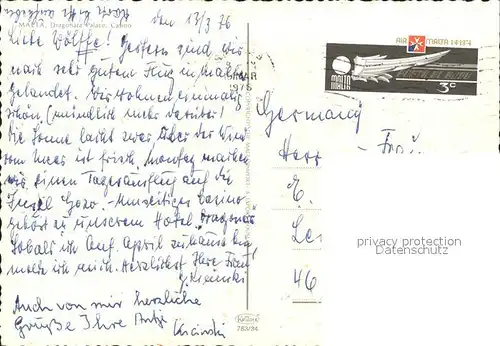 den 13/3 76
MALTA, Dragonara Palace, Casino
Liebe Wölffe! Gestern sind wir
nach sehr gutem Flug in Malta
gelandet. Wir wohnen einmalig
schön (mündlich mehr darüber)
Die Sonne lacht zwar über der Wind
vom Meer ist frisch. Montag machen
wir einen Tagesausflug auf die
Insel Gozo.
gehört zu unserem Hotel. Dragonar
Sobald ich Anf. April zuhause bin
melde ich mich. Herzlichst Ihre Frau
Auch von mir herzliche
Grüße Ihre Antje
MAR
1976
AIR MALTA 1·4·1974
MALTA
MALTA
3c
Germany
Herr
Frau
E.
Le
46
763/34
privacy protection
Datenschutz